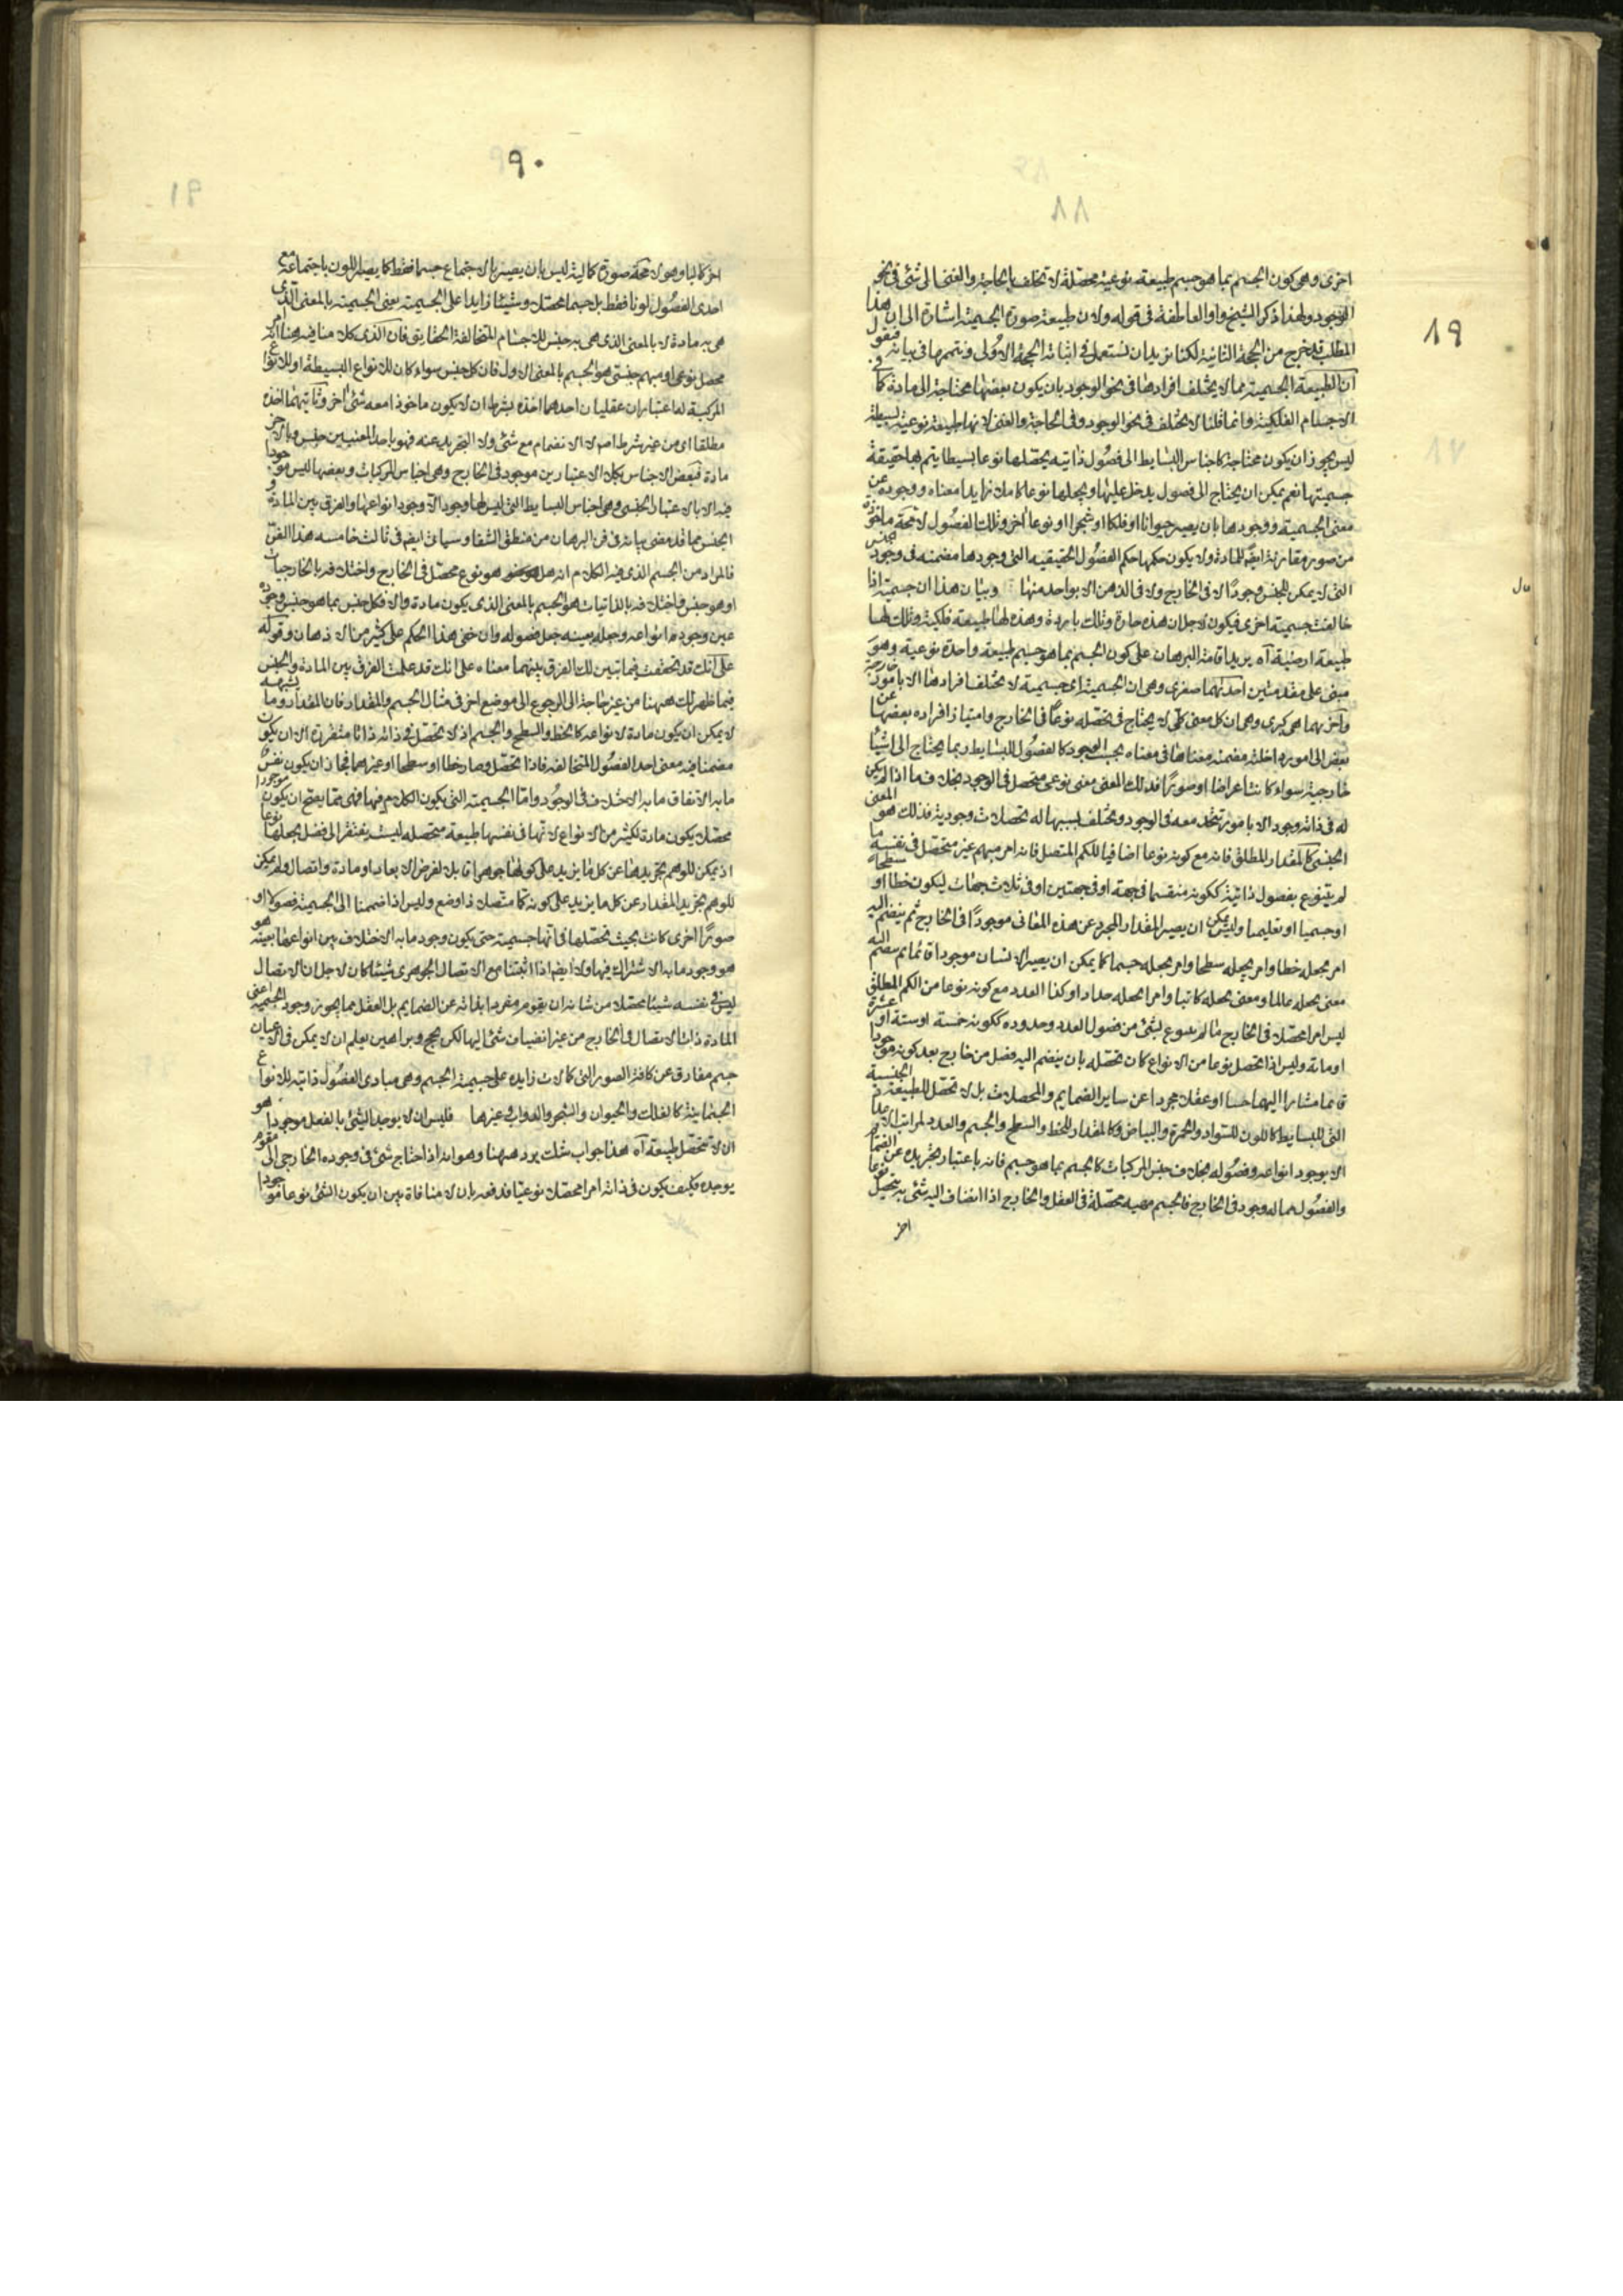 ٨٩
اخرى وهى كون الجسم بما هو جسم طبيعة نوعية محصلة لا تختلف بالحاجة والغنى الى شئ فى نحو
الوجود ولهذا ذكر الشيخ واو العاطفة فى قوله ولان طبيعة صورة الجسمية اشارة الى ان هذا
المطلب قد خرج من الحجة الثانية لكنا نريد ان نستعمل فى اثباته الحجة الاولى ونتممها فى بيانه فنقول
ان الطبيعة الجسمية مما لا يختلف افرادها فى نحو الوجود بان يكون بعضها محتاجة الى مادة كا
الاجسام الفلكية وانما قلنا لا تختلف فى نحو الوجود وفى الحاجة والغنى لانها طبيعة نوعية بسيطة
ليس يجوز ان يكون محتاجة كاجناس البسايط الى فصول ذاتيه يحصلها نوعا بسيطا يتم بها حقيقة
جسميتها نعم يمكن ان يحتاج الى فصول يدخل عليها ويجعلها نوعا كاملا زايدا معناه ووجوده عن
معنى الجسمية ووجودها بان يصير حيوانا او فلكا او شجرا او نوعا اخر وتلك الفصول لا محة ماخوذة
من صور مقارنة ايضا للمادة ولا يكون حكمها حكم الفصول الحقيقيه التى وجودها مضمنه فى وجود الجنس
التى لا يمكن للجنس وجودا لا فى الخارج ولا فى الذهن الا بواحد منها وبيان هذا ان جسمية اذا
خالفت جسمية اخرى فيكون لاجل ان هذه حارة وتلك باردة وهذه لها طبيعة فلكية وتلك لها
طبيعة ارضية آه يريد اقامة البرهان على كون الجسم بما هو جسم طبيعة واحدة نوعية وهو
مبنى على مقدمتين احديهما صغرى وهى ان الجسمية اى جسمية لا تختلف افرادها الا بامور خارجة
واخريهما هى كبرى وهى ان كل معنى كلى لا يحتاج فى تحصله نوعا فى الخارج وامتياز افراده بعضها عن
بعض الى امور داخلة مضمنة معناها فى معناه بحسب الوجود كالفصول للبسايط ربما يحتاج الى اشيا
خارجية سواء كانت اعراضا او صورا فذلك المعنى معنى نوعى متحصل فى الوجود بخلاف ما اذا لم يكن
له فى ذاته وجود الا بامور يتحد معه فى الوجود ويختلف بسببها له تحصلات وجودية فذلك هو المعنى
الجنسى كالمقدار المطلق فانه مع كونه نوعا اضافيا للكم المتصل فانه امر مبهم غير متحصل فى نفسه ما
لم يتنوع بفصول ذاتية ككونه منقسما فى جهة او فى جهتين او فى ثلاث جهات ليكون خطا او سطحا
او جسميا او تعليميا وليس يمكن ان يصير المقدار المجرد عن هذه المعانى موجودا فى الخارج ثم ينضم اليه
امر يجعله خطا وامر يجعله سطحا وامر يجعله جسما كما يمكن ان يصير الانسان موجودا قائما ثم ينضم اليه
معنى يجعله عالما ومعنى يجعله كاتبا وامرا يجعله حدادا وكذا العدد مع كونه نوعا من الكم المطلق
ليس امرا محصلا فى الخارج ما لم يتنوع بشئ من فصول العدد وحدوده ككونه خمسة او ستة او عشرة
او مائة وليس اذا تحصل نوعا من الانواع كان تحصله بان ينضم اليه فصل من خارج بعد كونه موجودا
قائما مشارا اليها حسا او عقلا مجردا عن ساير الضمايم والمحصلات بل لا تحصل للطبيعة الجنسية
التى للبسايط كاللون للسواد والحمرة والبياض وكالمقدار للخط والسطح والجسم والعدد لمراتب الاعداد
الا بوجود انواعه وفصوله بخلاف جنس المركبات كالجسم بما هو جسم فانه باعتبار تجريده عن الضمائم
والفصول مما له وجود فى الخارج فالجسم مهية محصلة فى العقل والخارج اذا انضاف اليه شئ به يتحصل نوعا
اخر
٩٠
اخر كاليا وهو لا محة صورة كمالية ليس بان يصير بالاجتماع جسما فقط كما يصير اللون باجتماعه مع
احدى الفصول لونا فقط بل جسما محصلا وشيئا زايدا على الجسمية يعنى الجسمية بالمعنى الذى
هى به مادة لا بالمعنى الذى هى به جنس للاجسام المتخالفة الحقايق فان الذى كلامنا فيه هنا انه امر
محصل نوعى او مبهم جنسى هو الجسم بالمعنى الاول فان كل جنس سواء كان للانواع البسيطة او للانواع
المركبة لها اعتباران عقليان احدهما اخذه بشرط ان لا يكون ماخوذا معه شئ اخر وثانيهما اخذه
مطلقا اى من غير شرط اصلا لا انضمام مع شئ ولا التجريد عنه فهو باحد المعنيين جنس وبالاخر
مادة فبعض الاجناس بكلا الاعتبارين موجود فى الخارج وهى اجناس المركبات وبعضها ليس موجودا
فيه الا بالاعتبار الجنسى وهى اجناس البسايط التى ليس لها وجود الا وجود انواعها والفرق بين المادة و
الجنس مما قد مضى بيانه فى فن البرهان من منطق الشفا وسياتى ايضا فى ثالث خامسه هذا الفن
فالمراد من الجسم الذى فيه الكلام انه هل هو نوع محصل فى الخارج واختلافه بالخارجيات
او هو جنس واختلافه بالذاتيات هو الجسم بالمعنى الذى يكون مادة والا فكل جنس بما هو جنس وجوده
عين وجود انواعه وجعله بعينه جعل فصوله وان خفى هذا الحكم على كثير من الاذهان وقوله
على انك قد تحققت فيما تبين لك الفرق بينهما معناه على انك قد علمت الفرق بين المادة والجنس
فيما ظهر لك ههنا من غير حاجة الى الرجوع الى موضع اخر فى مثال الجسم والمقدار فان المقدار وما يشبهه
لا يمكن ان يكون مادة لانواعه كالخط والسطح والجسم اذ لا تحصل فى ذاته ذاتا متقررة الا ان يكون
مضمنا فيه معنى احد الفصول المتخالفه فاذا تحصل وصار خطا او سطحا او غيرهما فجاز ان يكون نفس
ما به الاتفاق ما به الاختلاف فى الوجود واما الجسمية التى يكون الكلام فيها فهى مما يصح ان يكون موجودا
محصلا يكون مادة لكثير من الانواع لانها فى نفسها طبيعة متحصله ليست يفتقر الى فصل يجعلها نوعا
اذ يمكن للوهم تجريدها عن كل ما يزيد على كونها جوهرا قابلا لفرض الابعاد او مادة واتصال ولم يمكن
للوهم تجريد المقدار عن كل ما يزيد على كونه كما متصلا ذا وضع وليس اذا ضممنا الى الجسمية فصولا او
صورا اخرى كانت بحيث تحصلها فى انها جسمية حتى يكون وجود ما به الاختلاف بين انواعها بعينه هو
هو وجود ما به الاشتراك فيها ولا ايضا اذا اثبتنا مع الاتصال الجوهرى شيئا كان لاجل ان الاتصال
ليس فى نفسه شيئا محصلا من شانه ان يقوم مفردا بذاته عن الضمايم بل العقل مما يجوز وجود الجسمية اعنى
المادة ذات الاتصال فى الخارج من غير انضياف شئ اليها لكن بحجج وبراهين يعلم ان لا يمكن فى الاعيان
جسم مفارق عن كافة الصور التى كمالات زايده على جسمية الجسم وهى مبادى الفصول ذاتية للانواع
الجسمانية كالفلك والحيوان والشجر والدواب وغيرها فليس ان لا يوجد الشئ بالفعل موجودا هو
ان لا تتحصل طبيعة آه هذا جواب شك يرد ههنا وهو انه اذا احتاج شئ فى وجوده الخارجى الى مقوم
يوجده فكيف يكون فى ذاته امرا محصلا نوعيا فدفعه بان لا منافاة بين ان يكون الشئ نوعا موجودا